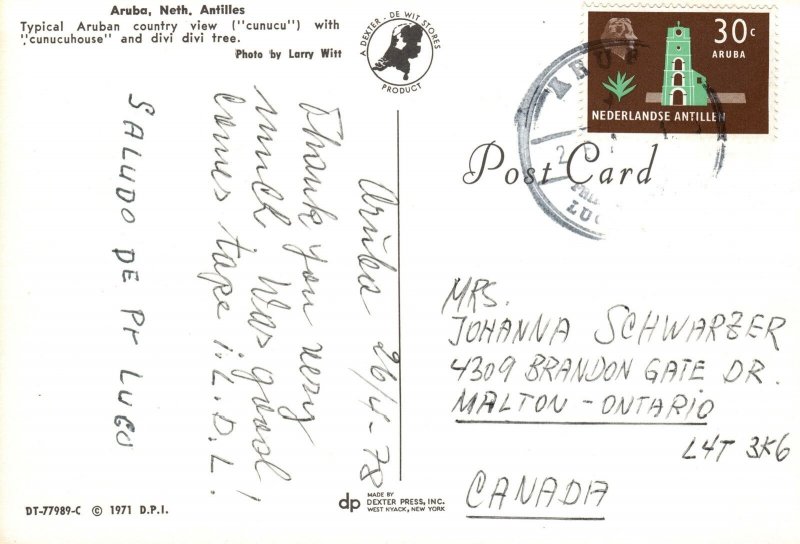 Aruba, Neth. Antilles
Typical Aruban country view ("cunucu") with
"cunucuhouse" and divi divi tree.
Photo by Larry Witt
A DEXTER - DE WIT STORES
PRODUCT
30c
ARUBA
NEDERLANDSE ANTILLEN
Post Card
Aruba 26/4-78
Thank you very
much. Was good!
SALUDO DE PY LUGO
MRS.
JOHANNA SCHWARZER
4309 BRANDON GATE DR.
MALTON - ONTARIO
L4T 3K6
CANADA
DT-77989-C © 1971 D.P.I.
dp
MADE BY
DEXTER PRESS, INC.
WEST NYACK, NEW YORK